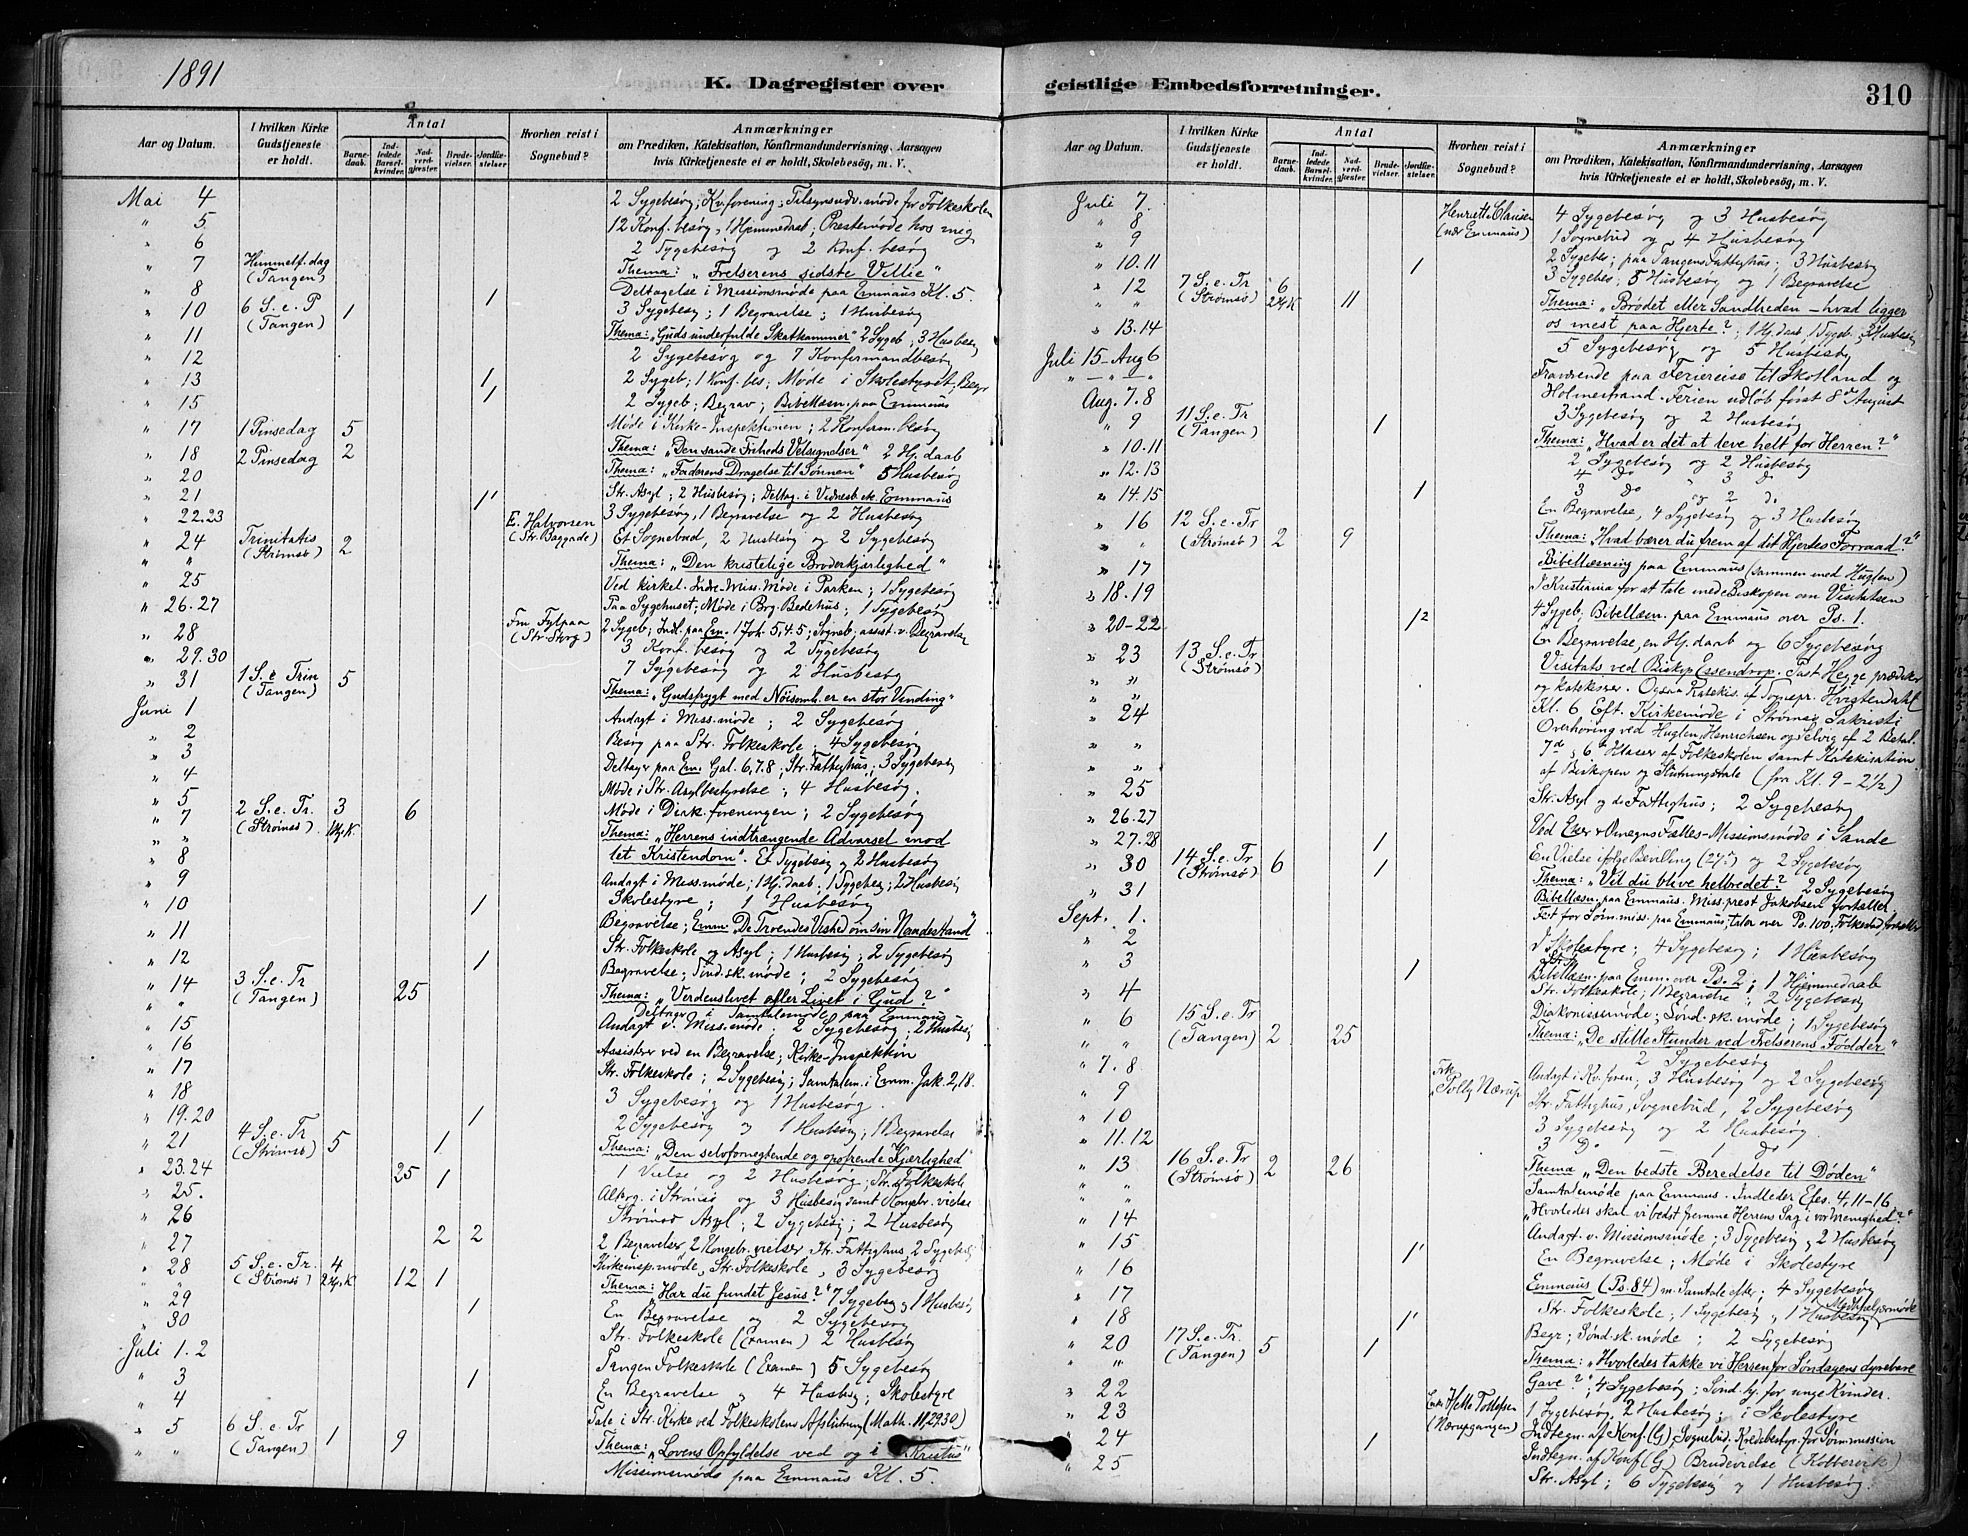 1891
K. Dagregister over geistlige Embedsforretninger.
310
Aar og Datum.
I hvilken Kirke Gudstjeneste er holdt.
Antal
Barnedaab.
Indledede Barselkvinder.
Nadverdgjæster.
Brudevielser.
Jordfæstelser
Hvorhen reist i Sognebud?
Anmærkninger
om Prædiken, Katekisation, Konfirmandundervisning, Aarsagen
hvis Kirketjeneste ei er holdt, Skolebesøg, m. V.
Mai 4 2 Sygebesøg; Kv.forening; Tilsynsudv. møde for Folkeskolen
" 5 12 Konf. besøg, 1 Hjemmedaab; Prestemøde hos meg
" 6 2 Sygebesøg og 2 Konf. besøg
" 7 Himmelf. dag (Tangen) Thema: "Frelserens sidste Villie"
Deltagelse i Missionsmøde paa Emmaus Kl. 5.
" 8 1 3 Sygebesøg; 1 Begravelse; 1 Husbesøg
" 10 6 S. e. P (Tangen) 1 Thema: "Guds underfulde Skatkammer" 2 Sygeb; 3 Husbesøg
" 11 2 Sygebesøg og 7 Konfirmandbesøg
" 12 2 Sygeb; 1 Konf. bes; Møde i Skolestyret; Begr
" 13 1 2 Sygeb; Begrav; Bibellæsn. paa Emmaus
" 15 1 Møde i Kirke-Inspektionen; 2 Konfirm. besøg
" 17 1 Pinsedag 5 Thema: "Den sande Friheds Velsignelser" 2 Hj. daab
" 18 2 Pinsedag 2 Thema: "Faderens Dragelse til Sønnen" 5 Husbesøg
" 20 Str. Asyl; 2 Husbesøg; Deltag. i Vidnesb. ek. Emmaus
" 21 1 3 Sygebesøg, 1 Begravelse og 2 Husbesøg
" 22.23 E. Halvorsen (Str. Baggade) Et Sognebud, 2 Husbesøg og 2 Sygebesøg
" 24 Trinitatis (Strømsø) 2 Thema: "Den kristelige Broderkjærlighed"
" " Ved kirkel. Indre-Miss. Møde i Parken; 1 Sygebesøg
" 25 Paa Sygehuset; Møde i Brg. Bedehus; 1 Sygebesøg
" 26.27 2 Sygeb; Indl. paa Em. 1 Joh. 5, 4.5; Sogneb; assist. v. Begravelse
" 28 3 Konf. besøg og 2 Sygebesøg
" 29.30 7 Sygebesøg og 2 Husbesøg
" 31 1 S. e Trin (Tangen) 5 Thema: "Gudsfrygt med Nøisomh. er en stor Vinding"
Juni 1 Andagt i Miss. møde; 2 Sygebesøg
" 2 Besøg paa Str. Folkeskole; 4 Sygebesøg
" 3 Deltager paa Em. Gal. 6, 7.8; Str. Fattighus; 3 Sygebesøg
" 4 Møde i Str. Asylbestyrelse; 4 Husbesøg.
" 5 Møde i Diak. foreningen; 2 Sygebesøg
" 7 2 S. e. Tr. (Strømsø) 3 6 Thema: "Herrens indtrængende Advarsel mod
let Kristendom". Et Sygebesøg og 2 Husbesøg
" 8 Andagt i Miss. møde; 1 Hj. daab; 1 Sygebes; 2 Husbesøg
" 9 Skolestyre; 1 Husbesøg
" 10 1 Begravelse; Emm. De Troendes Vished om sin Naadestand
" 11 Str. Folkeskole og Asyl; 1 Husbesøg; 2 Sygebesøg
" 12 1 Begravelse; Sønd. sk. møde; 2 Sygebesøg
" 14 3 S. e. Tr (Tangen) 25 Thema: "Verdenslivet eller Livet i Gud?"
Deltager i Samtalemøde paa Emmaus
" 15 Andagt v. Miss. møde; 2 Sygebesøg; 2 Husbesøg
" 16 Assisterer ved en Begravelse; Kirke-Inspektion
" 17 Str. Folkeskole; 2 Sygebesøg; Samtalem. i Emm. Jak. 2, 18.
" 18 3 Sygebesøg og 1 Husbesøg.
" 19.20 1 2 Sygebesøg og 1 Husbesøg; 1 Begravelse
" 21 4 S. e. Tr (Strømsø) 5 1 Thema: "Den selvfornegtende og opofrende Kjærlighed"
" 23.24 25 1 1 Vielse og 2 Husbesøg; Str. Folkeskole
" 25. Alterg. i Strømsø og 3 Husbesøg samt Kongebr. vielse
" 26 Strømsø Asyl; 2 Sygebesøg; 2 Husbesøg
" 27 2 2 2 Begravelser, 2 Kongebr. vielser, Str. Fattighus, 2 Sygebesøg
" 28 5 S. e. Tr. (Strømsø) 4 12 1 Kirkeinsp. møde, Str. Folkeskole, 3 Sygebesøg
" " Thema: "Har du fundet Jesus?" 7 Sygebesøg og 1 Husbesøg
" 29 1 En Begravelse og 2 Sygebesøg
" 30 Str. Folkeskole (Examen) 2 Husbesøg
Juli 1.2 Tangen Folkeskole (Examen) 5 Sygebesøg
" 3 1 En Begravelse og 4 Husbesøg; Skolestyre
" 4 Tale i Str. Kirke ved Folkeskolens Afslutning (Math. 11, 29.30)
" 5 6 S. e. Tr (Tangen) 1 9 Thema: "Lovens Opfyldelse ved og i Kristus"
" " Missionsmøde paa Emmaus Kl. 5.
Aar og Datum.
I hvilken Kirke Gudstjeneste er holdt.
Antal
Barnedaab.
Indledede Barselkvinder.
Nadverdgjæster.
Brudevielser.
Jordfæstelser.
Hvorhen reist i Sognebud?
Anmærkninger
om Prædiken, Katekisation, Konfirmandundervisning, Aarsagen
hvis Kirketjeneste ei er holdt, Skolebesøg, m. V.
Juli 7. Henriette Clausen (nær Emmaus) 4 Sygebesøg og 3 Husbesøg
" 8 1 Sognebud og 4 Husbesøg
" 9 2 Sygebes; paa Tangens Fattighus; 3 Husbesøg
" 10.11 1 3 Sygebes, 5 Husbesøg og 1 Begravelse
" 12 7 S. e. Tr (Strømsø) 6 11 Thema: "Brødet eller Sandheden – hvad ligger
" " os mest paa Hjerte?; 1 Hj. daab, 1 Sygeb., 3 Husbesøg
" 13.14 5 Sygebesøg og 5 Husbesøg
Juli 15 - Aug 6 Fraværende paa Feriereise til Skotland og
Holmestrand. Ferien udløb først 8de August
Aug. 7.8 3 Sygebesøg og 2 Husbesøg
" 9 11 S. e. Tr (Tangen) 1 Thema: "Hvad er det at leve helt for Herren?"
" 10.11 2 Sygebesøg og 2 Husbesøg
" 12.13 4 do " 3 do
" 14.15 1 3 do og 2 do
En Begravelse, 4 Sygebesøg og 3 Husbesøg
" 16 12 S. e. Tr (Strømsø) 2 9 Thema: "Hvad bærer du frem af dit Hjertes Forraad?"
" " Bibellæsning paa Emmaus (sammen med Huglen)
" 17 I Kristiania for at tale med Biskopen om Visitatsen
" 18.19 4 Sygeb, Bibellæsn. paa Emmaus over Ps. 1.
" 20-22 1 En Begravelse, en Hj. daab og 6 Sygebesøg
" 23 13 S. e. Tr (Strømsø) Visitats ved Biskop Essendrop. Past. Hegge prædiker
" " og katekiserer. Ogsaa Katekis. af Sognepr. Hvistendahl
" " Kl. 6 Eft. Kirkemøde i Strømsø Sakristi
" 24 Overhøring ved Huglen, Henrichsen og Selvig af 2 Betal.
" " 7de og 6te Klasser af Folkeskolen samt Katekisation
" " af Biskopen og Slutningstale (fra Kl. 9 - 2½)
" 25 Str. Asyl og do Fattighus; 2 Sygebesøg
" 26.27 Ved Eker & Omegns Fælles-Missionsmøde i Sande
" 27.28 1 En Vielse ifølge Bevilling (27de) og 2 Sygebesøg
" 30 14 S. e. Tr (Strømsø) 6 1 Thema: "Vil du blive helbredet?" 2 Sygebesøg
" 31 Bibellæsn. paa Emmaus. Miss. prest Jakobsen fortæller.
Sept. 1. Fest for Sjøm. miss. paa Emmaus, taler over Ps. 100, Folkestad fortæller
" 2 I Skolestyre; 4 Sygebesøg; 1 Husbesøg
" 3 1 Bibellæsn. paa Emm. over Ps. 2; 1 Hjemmedaab
" 4 Str. Folkeskole; 1 Begravelse; 2 Sygebesøg
Diakonissemøde; Sønd. sk. møde; 1 Sygebesøg
" 6 15 S. e. Tr (Tangen) 2 25 Thema: "De stille Stunder ved Frelserens Fødder"
" 7.8 2 Sygebesøg
" 9 Frk. Tolly Nærup Andagt i Kv. foren, 3 Husbesøg og 2 Sygebesøg
" 10 Str. Fattighus, Sognebud, 2 Sygebesøg
3 Sygebesøg og 2 Husbesøg.
" 11.12 3 do 1 do
" 13 16 S. e. Tr (Strømsø) 2 26 Thema "Den bedste Beredelse til Døden"
" " Samtalemøde paa Emmaus. Indleder Efes. 4, 11-16.
" " "Hvorledes skal vi bedst fremme Herrens Sag i vor Menighed?"
" 14 Andagt v. Missionsmøde; 3 Sygebesøg og 2 Husbesøg
" 15 1 En Begravelse; Møde i Skolestyre
" 16 Emmaus (Ps. 84) m. Samtale efter; 4 Sygebesøg
" 17 Str. Folkeskole; 1 Sygebesøg, 1 Husbesøg
" 18 1 Begr; Sønd. sk. møde; 2 Sygebesøg
" 20 17 S. e. Tr. (Tangen) 5 1 Thema: "Hvorledes takke vi Herren for Søndagens dyrebare
" " Gave?"; 4 Sygebesøg; Sønd. hj. for unge Kvinder.
" 22 1 Sygebesøg, 2 Husbesøg; i Skolestyre
" 23 (Nærupgangen) Indtegn. af Konf. (G), Sognebud, Kredsbestyr. for Sjømmission
" 24 1 Indtegn. af Konf (G) Brudevielse (Kobbervik)
" 25 Str. Asyl; 6 Sygebesøg og 1 Husbesøg.